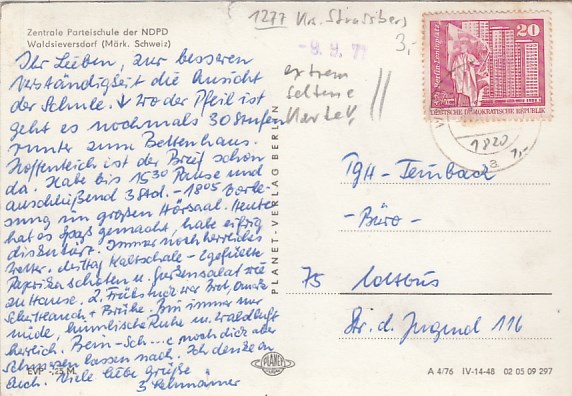 Zentrale Parteischule der NDPD
Waldsieversdorf (Märk. Schweiz)
1277 Krs. Strassberg
- 9. 9. 77
3,-
extrem
seltene
Karte!!
20
Berlin-Leninplatz
DEUTSCHE DEMOKRATISCHE REPUBLIK
1820
a
1,-
Ihr Lieben, zur besseren
Verständigkeit die Ansicht
der Schule. ↓ Wo der Pfeil ist
geht es nochmals 30 Stufen
runter zum Bettenhaus.
Hoffentlich ist der Brief schon
da. Habe bis 1530 Pause und
anschließend 3 Std. - 1805 Vorle-
sung im großen Hörsaal. Heute
hat es Spaß gemacht, habe eifrig
diskutiert. Immer noch herrliches
Wetter. Mittag Kaltschale - 2 gefüllte
Paprikaschoten u. Gurkensalat wie
zu Hause. 2. Frühstück war Brot,
+ Brühe. Bin immer nur
müde, himmlische Ruhe u. Waldluft
herrlich. Bein-Sch...c noch dick aber
Schmerzen lassen nach. Ich denke an
Euch. Viele liebe Grüße
PLANET-VERLAG BERLIN
TGH-
-Büro-
75 Cottbus
Str. d. Jugend 116
EVP -,25 M
PLANET
A 4/76 IV-14-48 02 05 09 297